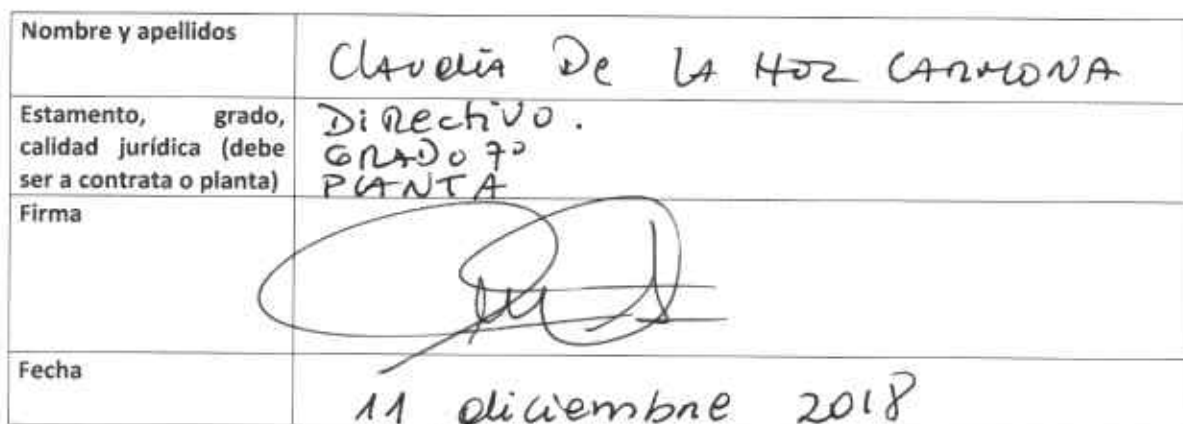 Nombre y apellidos
Claudia De LA HOZ CARMONA
Estamento, grado,
calidad jurídica (debe
ser a contrata o planta)
DiRectiVO.
GRADO 7º
PLANTA
Firma
Fecha
11 diciembre 2018